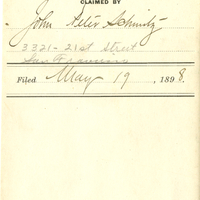 CLAIMED BY
John Peter Schmitz
3321-21st Street
San Francisco
Filed May 19, 1898.